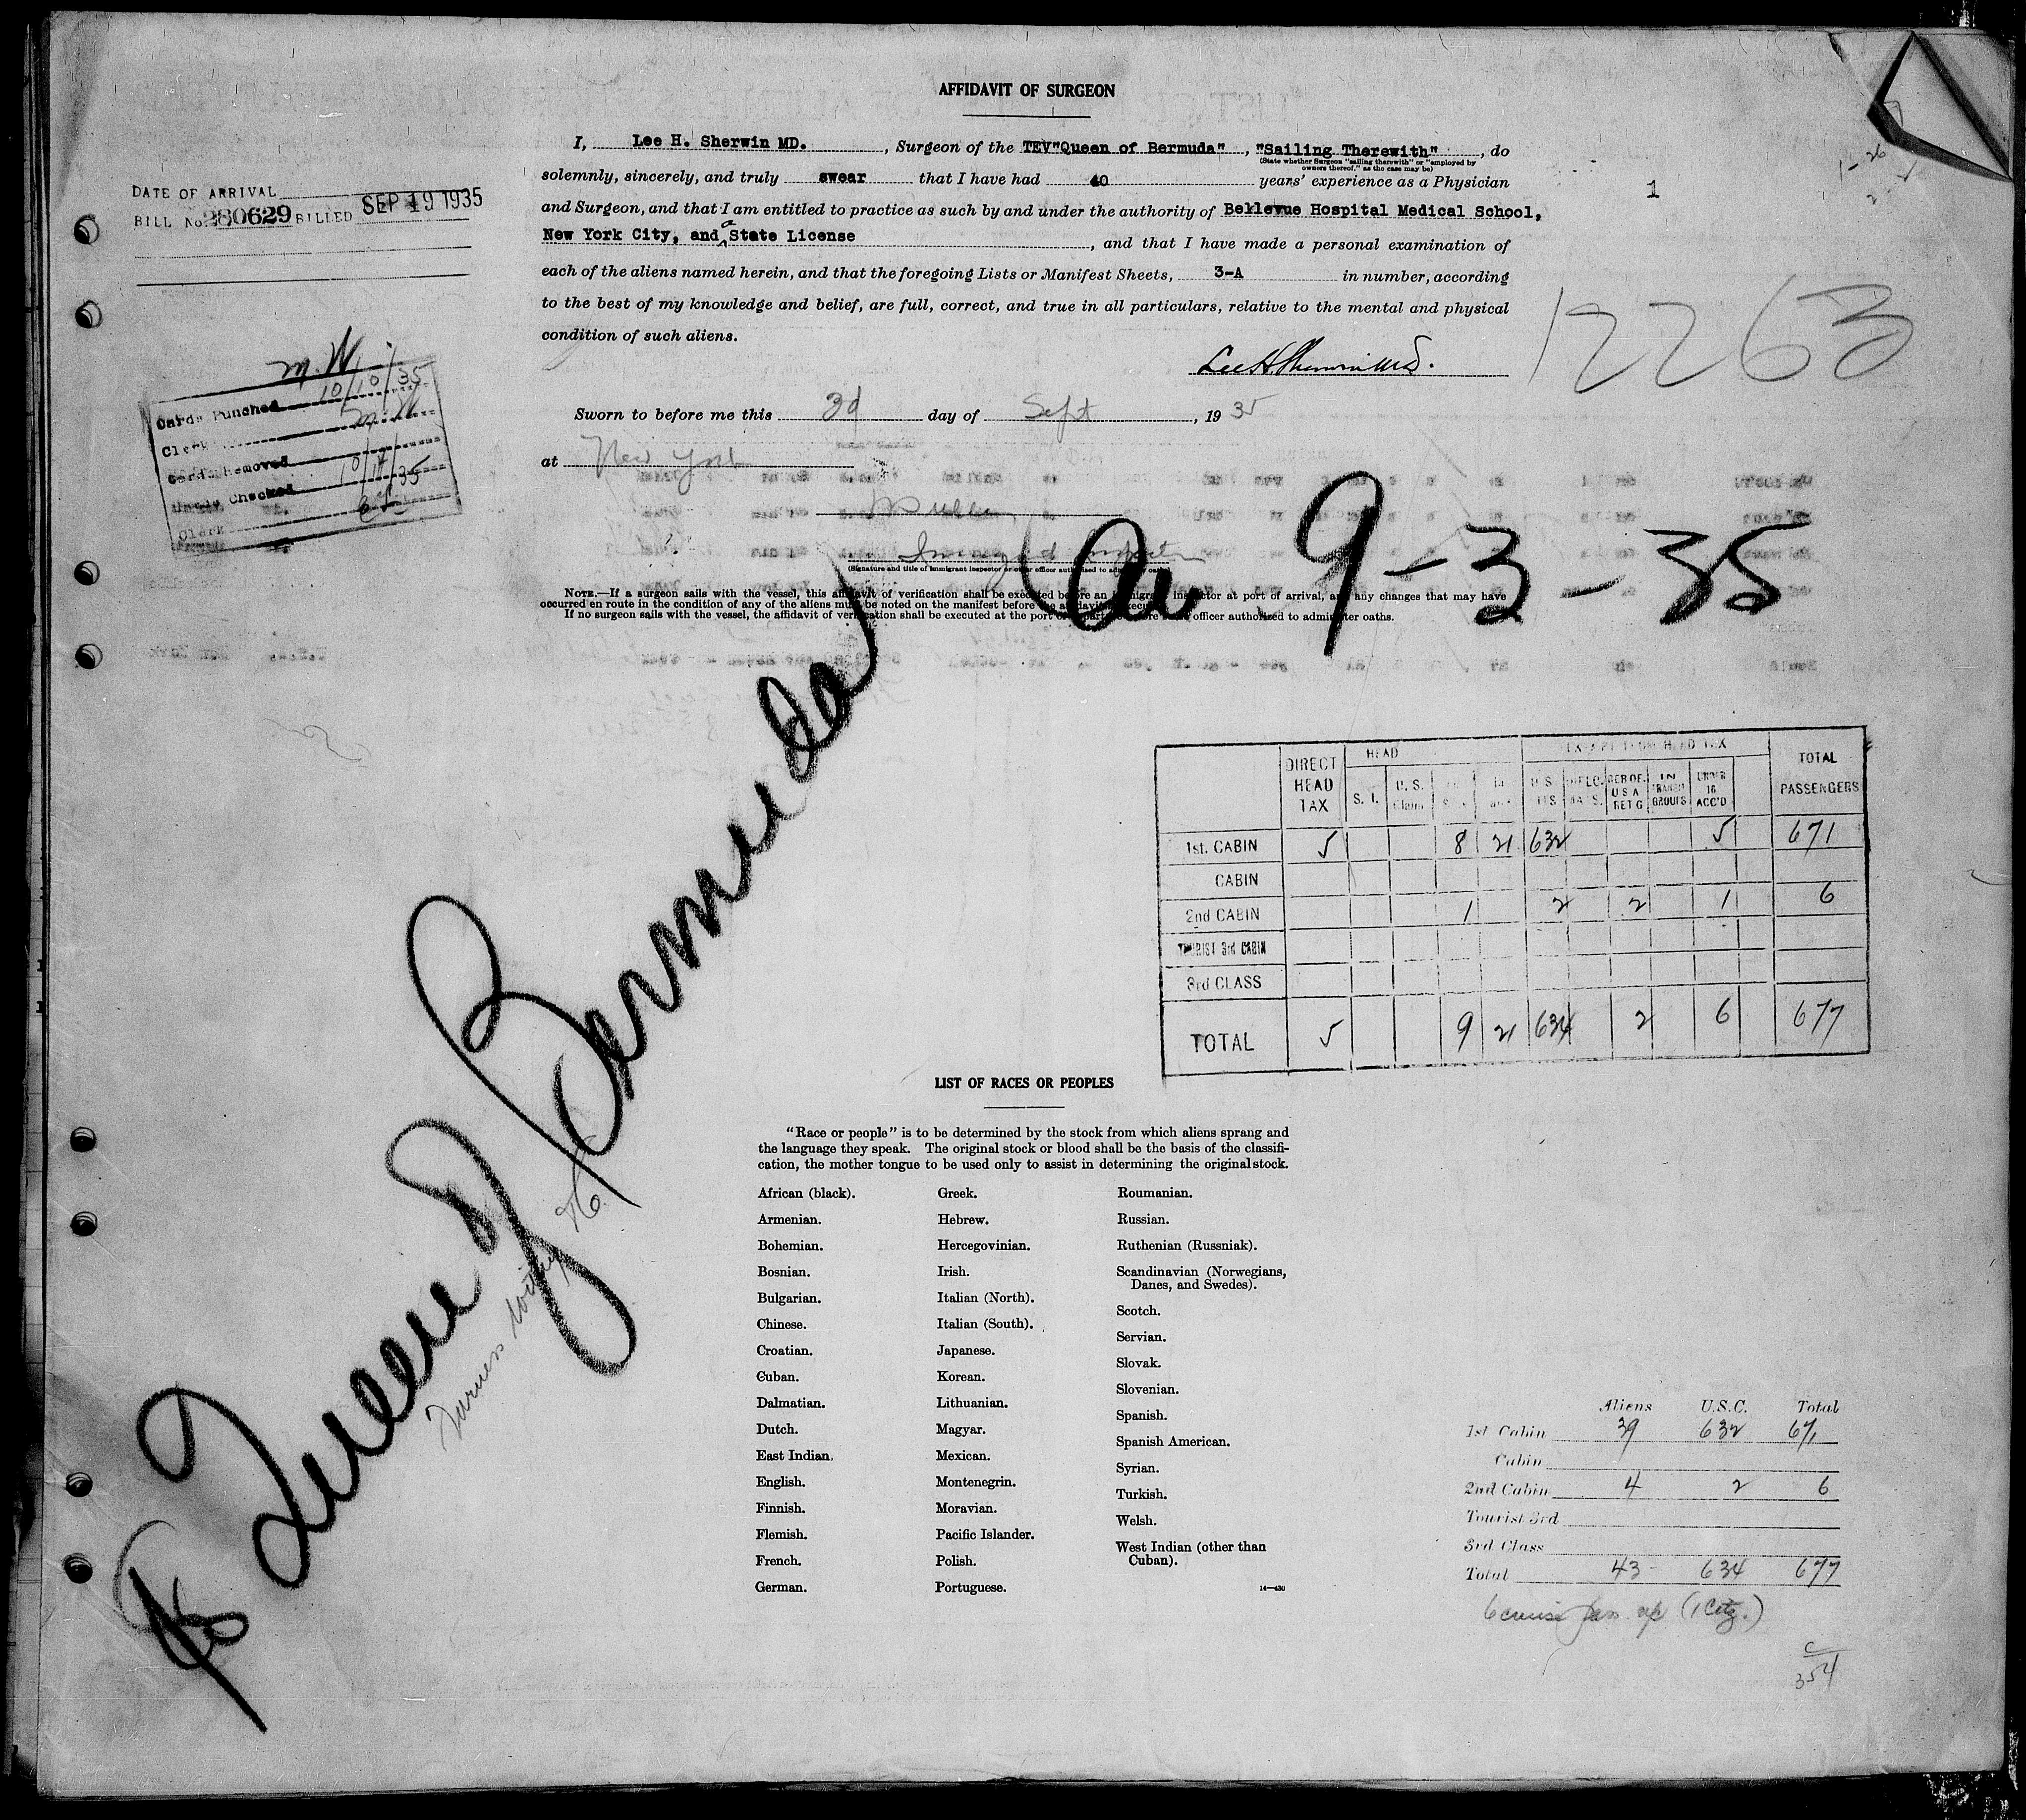 AFFIDAVIT OF SURGEON
I, Lee H. Sherwin MD. , Surgeon of the TEV"Queen of Bermuda" , "Sailing Therewith" , do
(State whether Surgeon "sailing therewith" or "employed by
owners thereof," as the case may be)
solemnly, sincerely, and truly swear that I have had 40 years' experience as a Physician
and Surgeon, and that I am entitled to practice as such by and under the authority of Bellevue Hospital Medical School,
New York City, and State License , and that I have made a personal examination of
each of the aliens named herein, and that the foregoing Lists or Manifest Sheets, 3-A in number, according
to the best of my knowledge and belief, are full, correct, and true in all particulars, relative to the mental and physical
condition of such aliens.
Lee H. Sherwin M.D.
Sworn to before me this 3d day of Sept , 19 35
at New York
Immigrant Inspector
(Signature and title of immigrant inspector or other officer authorized to administer oaths)
NOTE.—If a surgeon sails with the vessel, this affidavit of verification shall be executed before an immigrant inspector at port of arrival, and any changes that may have
occurred en route in the condition of any of the aliens must be noted on the manifest before the affidavit is executed.
If no surgeon sails with the vessel, the affidavit of verification shall be executed at the port of departure before officer authorized to administer oaths.
DATE OF ARRIVAL
BILL No. 280629 BILLED SEP 19 1935
1
12263
M.W.
Cards Punched 10/10/35
Clerk M.W.
Cards Removed
Cards Checked 10/14/35
Clerk
Arr 9-3-35
SS Queen of Bermuda
Furness Withy Co.
DIRECT HEAD TAX HEAD EXEMPT FROM HEAD TAX TOTAL PASSENGERS
S. I. U.S. Claim U.S. DIPLOMATS. RES OF. U S A RET G IN TRANSIT GROUPS UNDER 16 ACC'D
1st. CABIN 5 8 21 632 5 671
CABIN
2nd CABIN 1 2 2 1 6
TOURIST 3rd CABIN
3rd CLASS
TOTAL 5 9 21 634 2 6 677
LIST OF RACES OR PEOPLES
"Race or people" is to be determined by the stock from which aliens sprang and
the language they speak. The original stock or blood shall be the basis of the classifi-
cation, the mother tongue to be used only to assist in determining the original stock.
African (black).
Armenian.
Bohemian.
Bosnian.
Bulgarian.
Chinese.
Croatian.
Cuban.
Dalmatian.
Dutch.
East Indian.
English.
Finnish.
Flemish.
French.
German.
Greek.
Hebrew.
Hercegovinian.
Irish.
Italian (North).
Italian (South).
Japanese.
Korean.
Lithuanian.
Magyar.
Mexican.
Montenegrin.
Moravian.
Pacific Islander.
Polish.
Portuguese.
Roumanian.
Russian.
Ruthenian (Russniak).
Scandinavian (Norwegians,
Danes, and Swedes).
Scotch.
Servian.
Slovak.
Slovenian.
Spanish.
Spanish American.
Syrian.
Turkish.
Welsh.
West Indian (other than
Cuban).
14—430
Aliens U.S.C. Total
1st Cabin 39 632 671
Cabin
2nd Cabin 4 2 6
Tourist 3rd
3rd Class
Total 43 634 677
6 cruise pass. (1 Citz.)
C
354